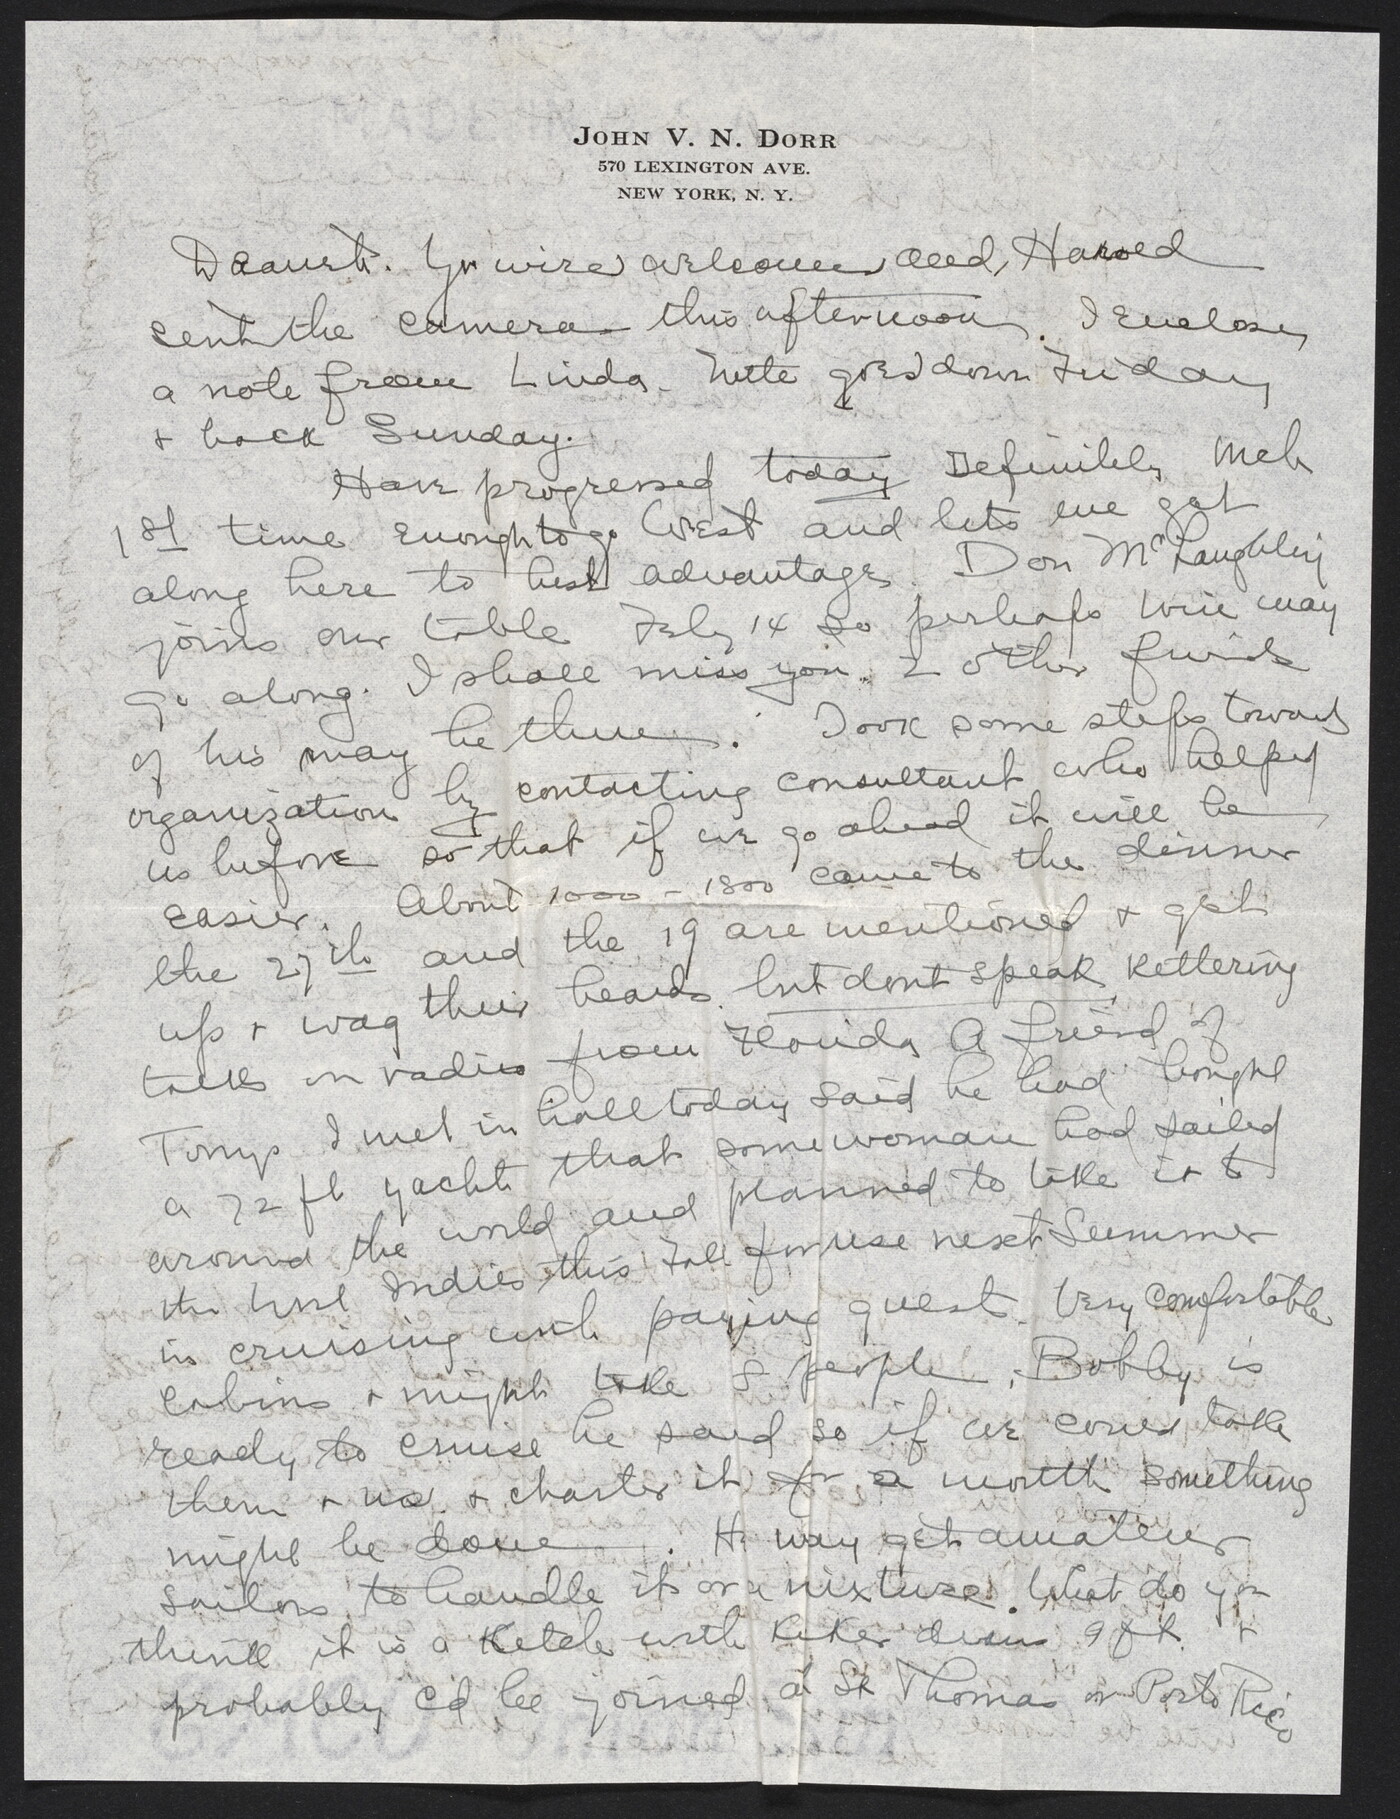 JOHN V. N. DORR
570 LEXINGTON AVE.
NEW YORK, N. Y.
Dearest. Yr wire welcome and, Harold
sent the camera this afternoon. I enclose
a note from Linda. goes down Friday
+ back Sunday.
Have progressed today Definitely
1st time enough to go West and lets me get
along here to best advantage. Don McLaughlin
joins our table Feby 14 so perhaps wire may
go along. I shall miss you. 2 other friends
of his may be there. Took some steps toward
organization by contacting consultant who helped
us before so that if we go ahead it will be
easier. About 1000 - 1800 came to the dinner
the 27th and the 19 are mentioned + get
up + wag their heads but dont speak, Kettering
talks on radio from Florida A friend of
I met in hall today said he had bought
a 72 ft yacht that some woman had sailed
around the world and planned to take it to
the West Indies this Fall for use next Summer
in cruising with paying guest. Very comfortable
cabins + might take 8 people, Bobby is
ready to cruise he said so if we could take
them + us + charter it for a month something
might be done. He may get amateur
sailors to handle it or a mixture. What do you
think it is a Ketch with draws 9 ft. +
probably c'd be joined at St Thomas or Porto Rico